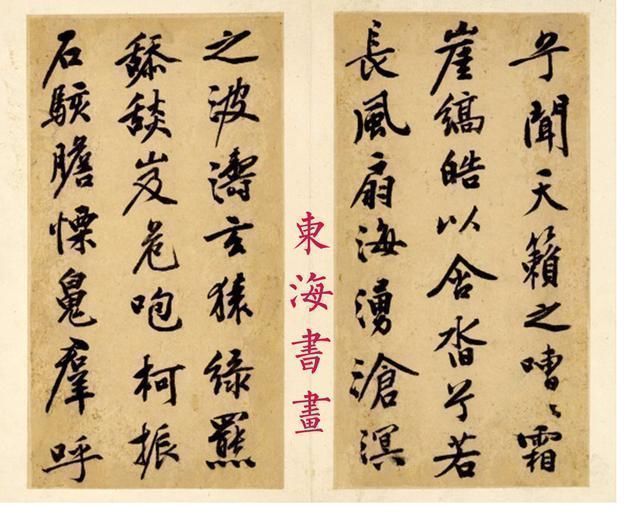 兮聞天籟之嘈〻霜
崖縞皓以合沓兮若
長風扇海湧滄溟
之波濤玄猿綠羆
舔舕岌危咆柯振
石駭膽慄魄羣呼
東海書畫